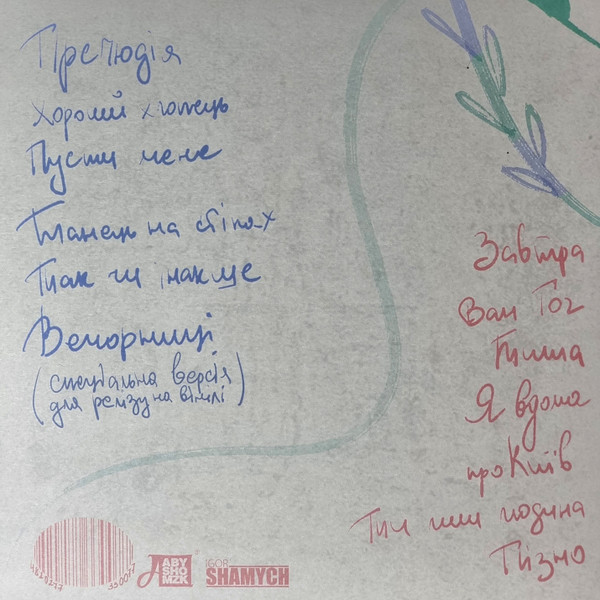 Прелюдія
Хороший хлопець
Пусти мене
Танець на стінах
Так чи інакше
Вечорниці
(спеціальна версія
для релізу на вінілі)
Завтра
Ван Гог
Тиша
Я вдома
про Київ
година
Пізно
ABY
SHO
MZK
IGOR
SHAMYCH